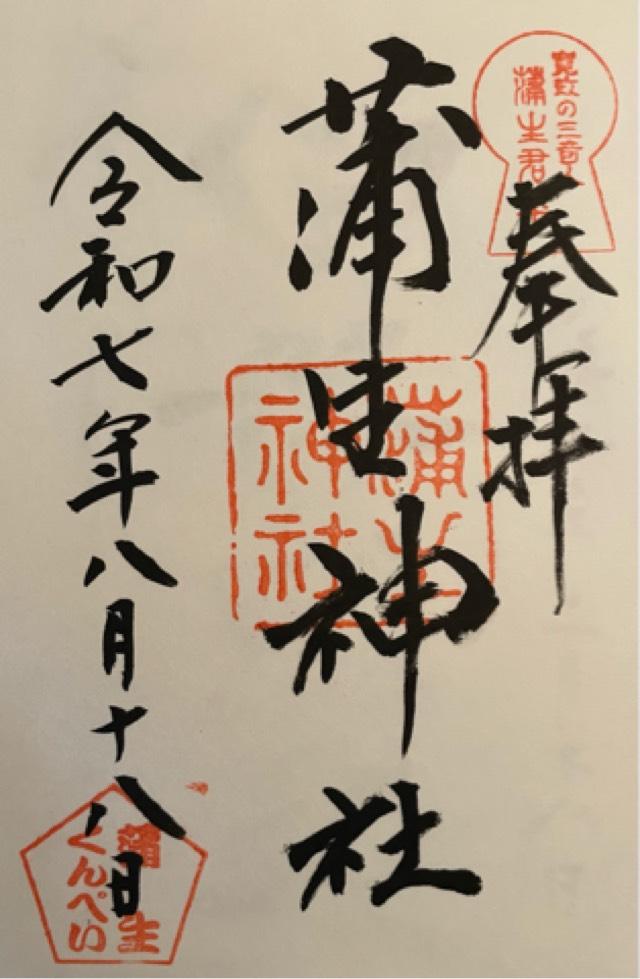 奉拝
蒲生神社
令和七年八月十八日
寛政の三奇人
蒲生君平
蒲生
神社
蒲生
くんぺい